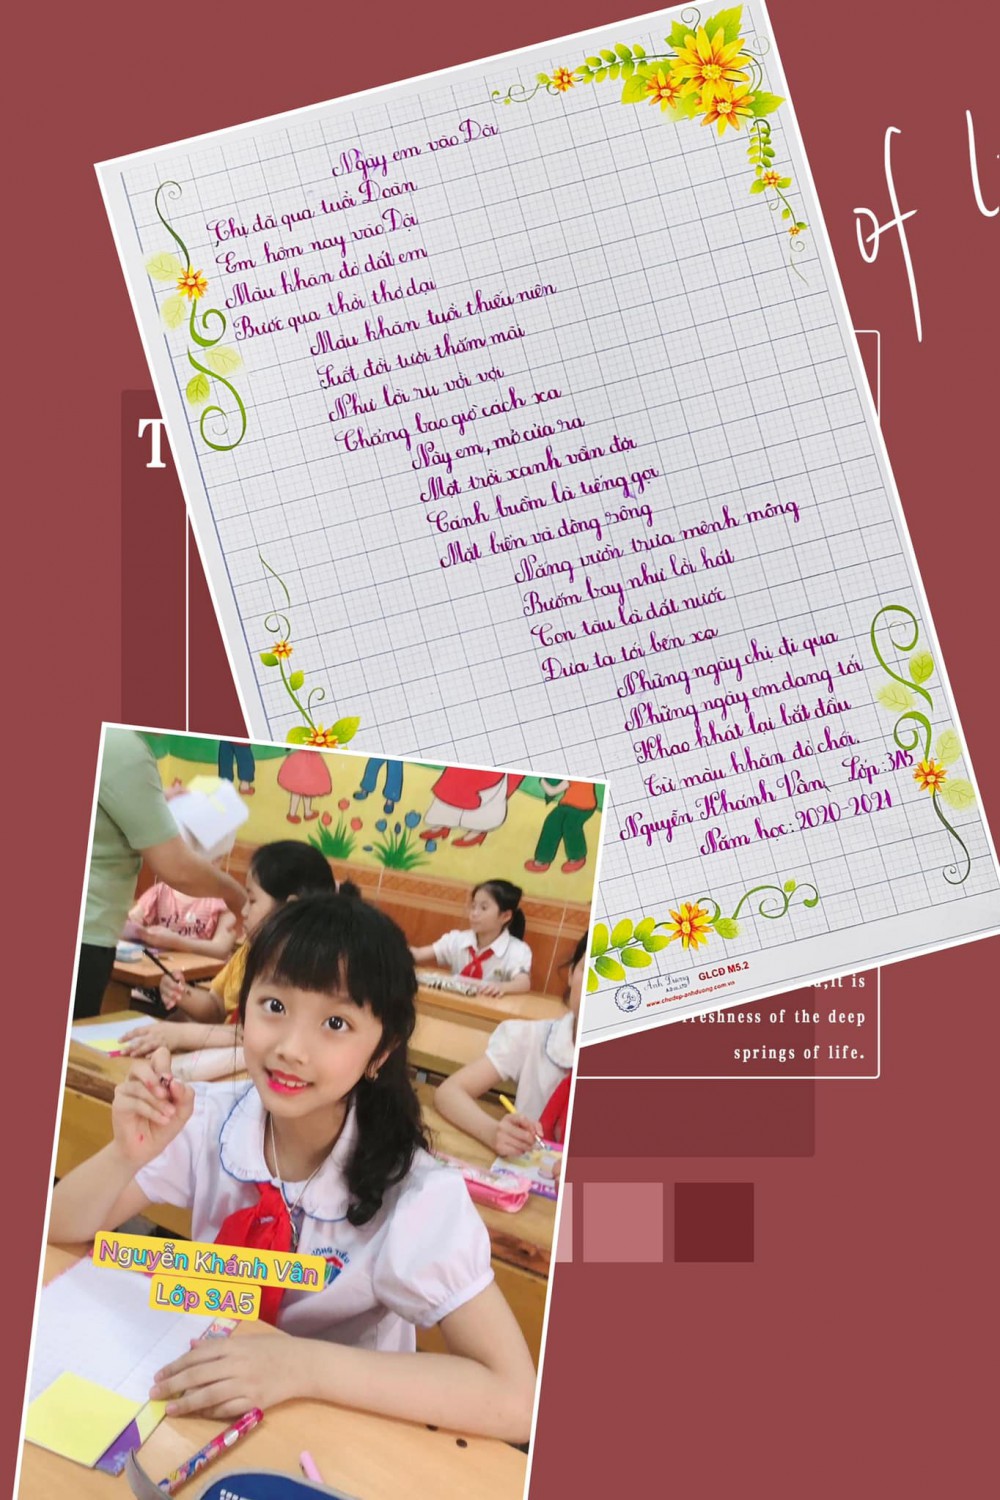 Ngày em vào Đội
Chị đã qua tuổi Đoàn
Em hôm nay vào Đội
Màu khăn đỏ dắt em
Bước qua thời thơ dại
Màu khăn tuổi thiếu niên
Suốt đời tươi thắm mãi
Như lời ru vời vợi
Chẳng bao giờ cách xa
Này em, mở cửa ra
Một trời xanh vẫn đợi
Cánh buồm là tiếng gọi
Mặt biển và dòng sông
Nắng vườn trưa mênh mông
Bướm bay như lời hát
Con tàu là đất nước
Đưa ta tới bến xa
Những ngày chị đi qua
Những ngày em đang tới
Khao khát lại bắt đầu
Từ màu khăn đỏ chói.
Nguyễn Khánh Vân Lớp 3A5
Năm học: 2020-2021
GLCD M5.2
www.chudep-anhduong.com.vn
of
T
it is
freshness of the deep
springs of life.
Nguyễn Khánh Vân
Lớp 3A5